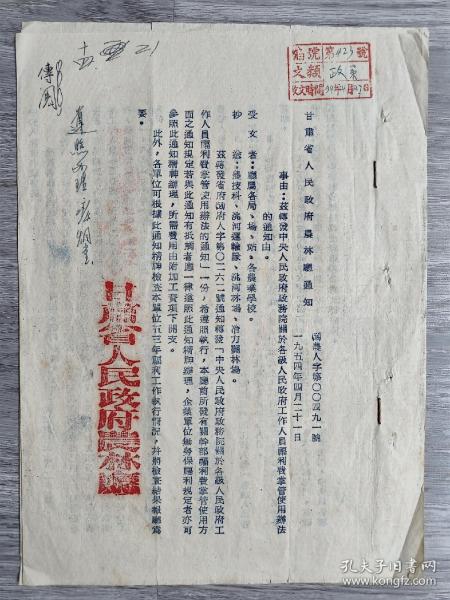 編號 第423號
文類 政策
甘肅省人民政府農林廳通知
農人字第〇〇四九一號
一九五四年四月二十一日
事由：茲轉發中央人民政府政務院關於各級人民政府工作人員福利費掌管使用辦法
的通知由。
受文者：廳屬各局、場、站、各農業學校。
抄 送：農技科、洮河運輸隊、洮河林場、冶力關林場。
茲轉發省府
字第〇二六二號通知轉發「中央人民政府政務院關於各級人民政府工
作人員福利費掌管使用辦法的通知」一份，希遵照執行，本廳前所發有關幹部福利費掌管使用方
面之通知規定若與此通知有抵觸者應一律遵照此通知精神辦理，企業單位無勞保福利規定者亦可
參照此通知精神辦理，所需費用由附加工資項下開支。
此外，各單位可根據此通知精神檢查本單位五三年福利工作執行情況，并將檢查結果報廳為
要。
甘肅省人民政府農林廳
傳閱
孔夫子旧书网
book.kongfz.com